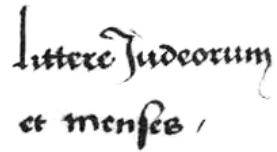 littere Judeorum
et menses /